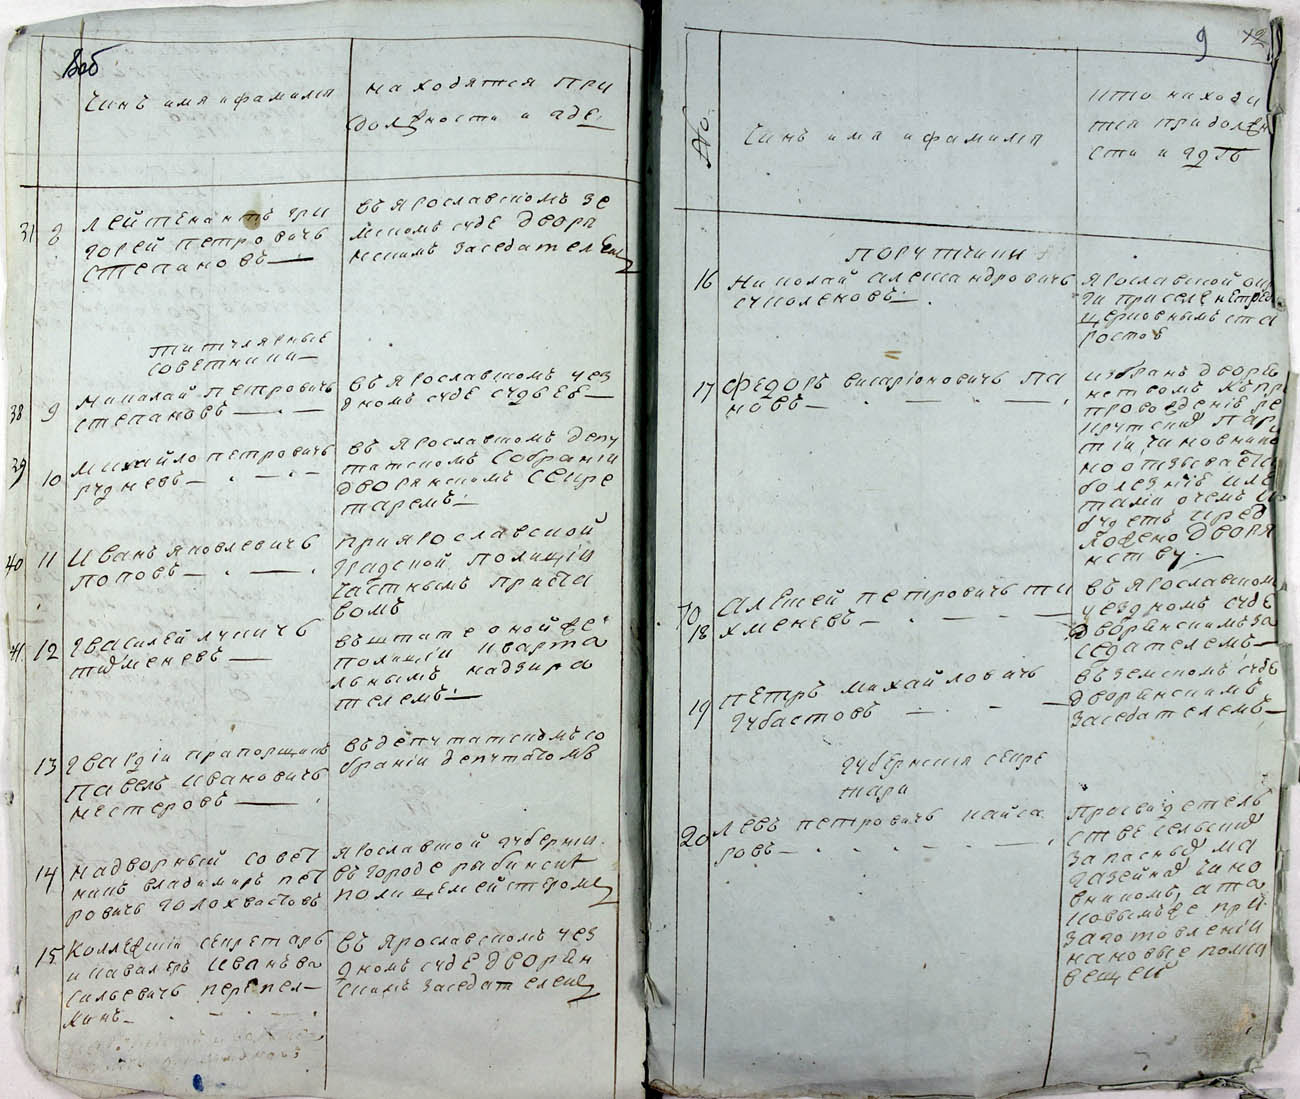 8об
Чинъ имя ифамилія
находятся при
должности и где.
31 8 Лейтенантъ Гри
горей Петровичь
Степановъ
въ Ярославскомъ зе
мскомъ суде дворя
нскимъ заседателем
титулярные
советники
38 9 Николай Петровичь
Степановъ
въ Ярославскомъ уез
дномъ суде судьею
39 10 Михайло Петровичь
Рудневъ
въ Ярославскомъ депу
татскомъ собраніи
дворянскимъ секре
таремъ
40 11 Иванъ Яковлевичь
Поповъ
при Ярославской
градской полиціи
частнымъ приста
вомъ
41. 12
въ штате оной же
полиціи кварта
льнымъ надзира
телемъ
13 Гвардіи прапорщикъ
Павелъ Ивановичь
Нестеровъ
въ депутатскомъ со
браніи депутатомъ
14 надворный совет
никъ Владимиръ Пет
ровичь Голохвастовъ
Ярославской губерніи
въ городе Рыбинске
полицмейстером
15 Коллежскій секретарь
и кавалеръ Иванъ Ва
сильевичь Перепел
кинъ
въ Ярославскомъ уез
дномъ суде дворян
скимъ заседателем
9 12
№
Чинъ имя и фамилія
кто находи
тся при должн
сти и где
Порутчики
16 Николай Александровичь
Ярославской окру
ги при селе
церковнымъ ста
ростою
17 Федоръ Висаріоновичь Па
новъ
избранъ дворя
нствомъ къ пре
провожденію ре
крутской пар
тіи, чиновнико
но отзывается
болезнію
о чемъ и
будетъ пред
ложено дворя
нству.
70
18 Алексей Петровичь Ти
хменевъ
въ Ярославском
уездномъ суде
дворянскимъ за
седателемъ
19 Петръ Михайловичь
Губастовъ
въ земскомъ суде
дворянскимъ
заседателемъ
губернскія секре
тари
20 Левъ Петровичь Кайса
ровъ
сельских
запасных ма
газейнов чино
вникомъ, а та
ковымъ же при
заготовленіи